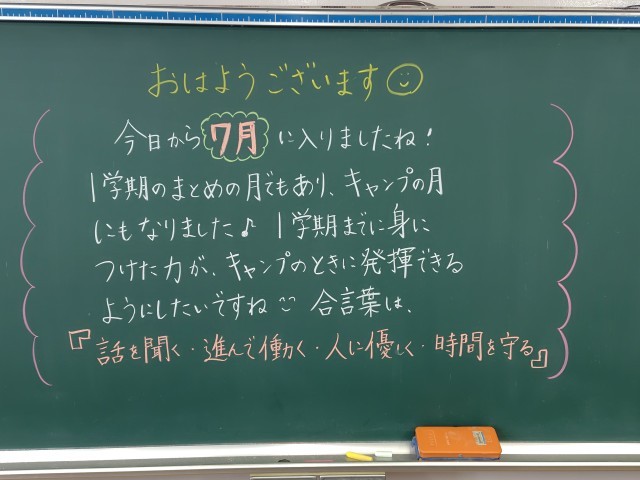 おはようございます
今日から7月に入りましたね!
1学期のまとめの月でもあり、キャンプの月
にもなりました♪ 1学期までに身に
つけた力が、キャンプのときに発揮できる
ようにしたいですね 合言葉は、
『話を聞く・進んで働く・人に優しく・時間を守る』